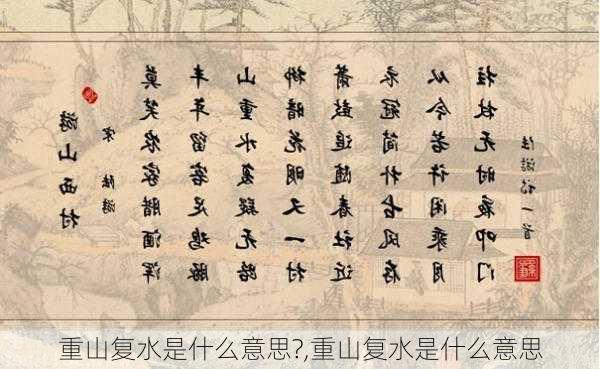 游山西村
宋 陆游
莫笑农家腊酒浑
丰年留客足鸡豚
山重水复疑无路
柳暗花明又一村
箫鼓追随春社近
衣冠简朴古风存
从今若许闲乘月
拄杖无时夜叩门
陆游诗一首
重山复水是什么意思?,重山复水是什么意思